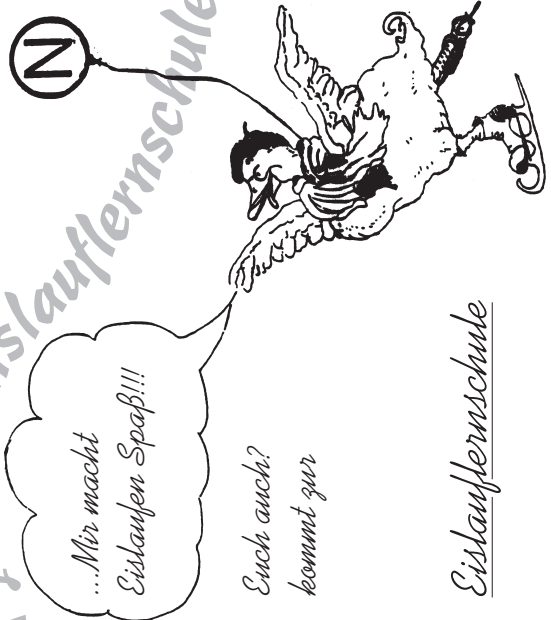 ...Mir macht
Eislaufen Spaß!!!
Euch auch?
kommt zur
Eislauflernschule
N
islauflernschule